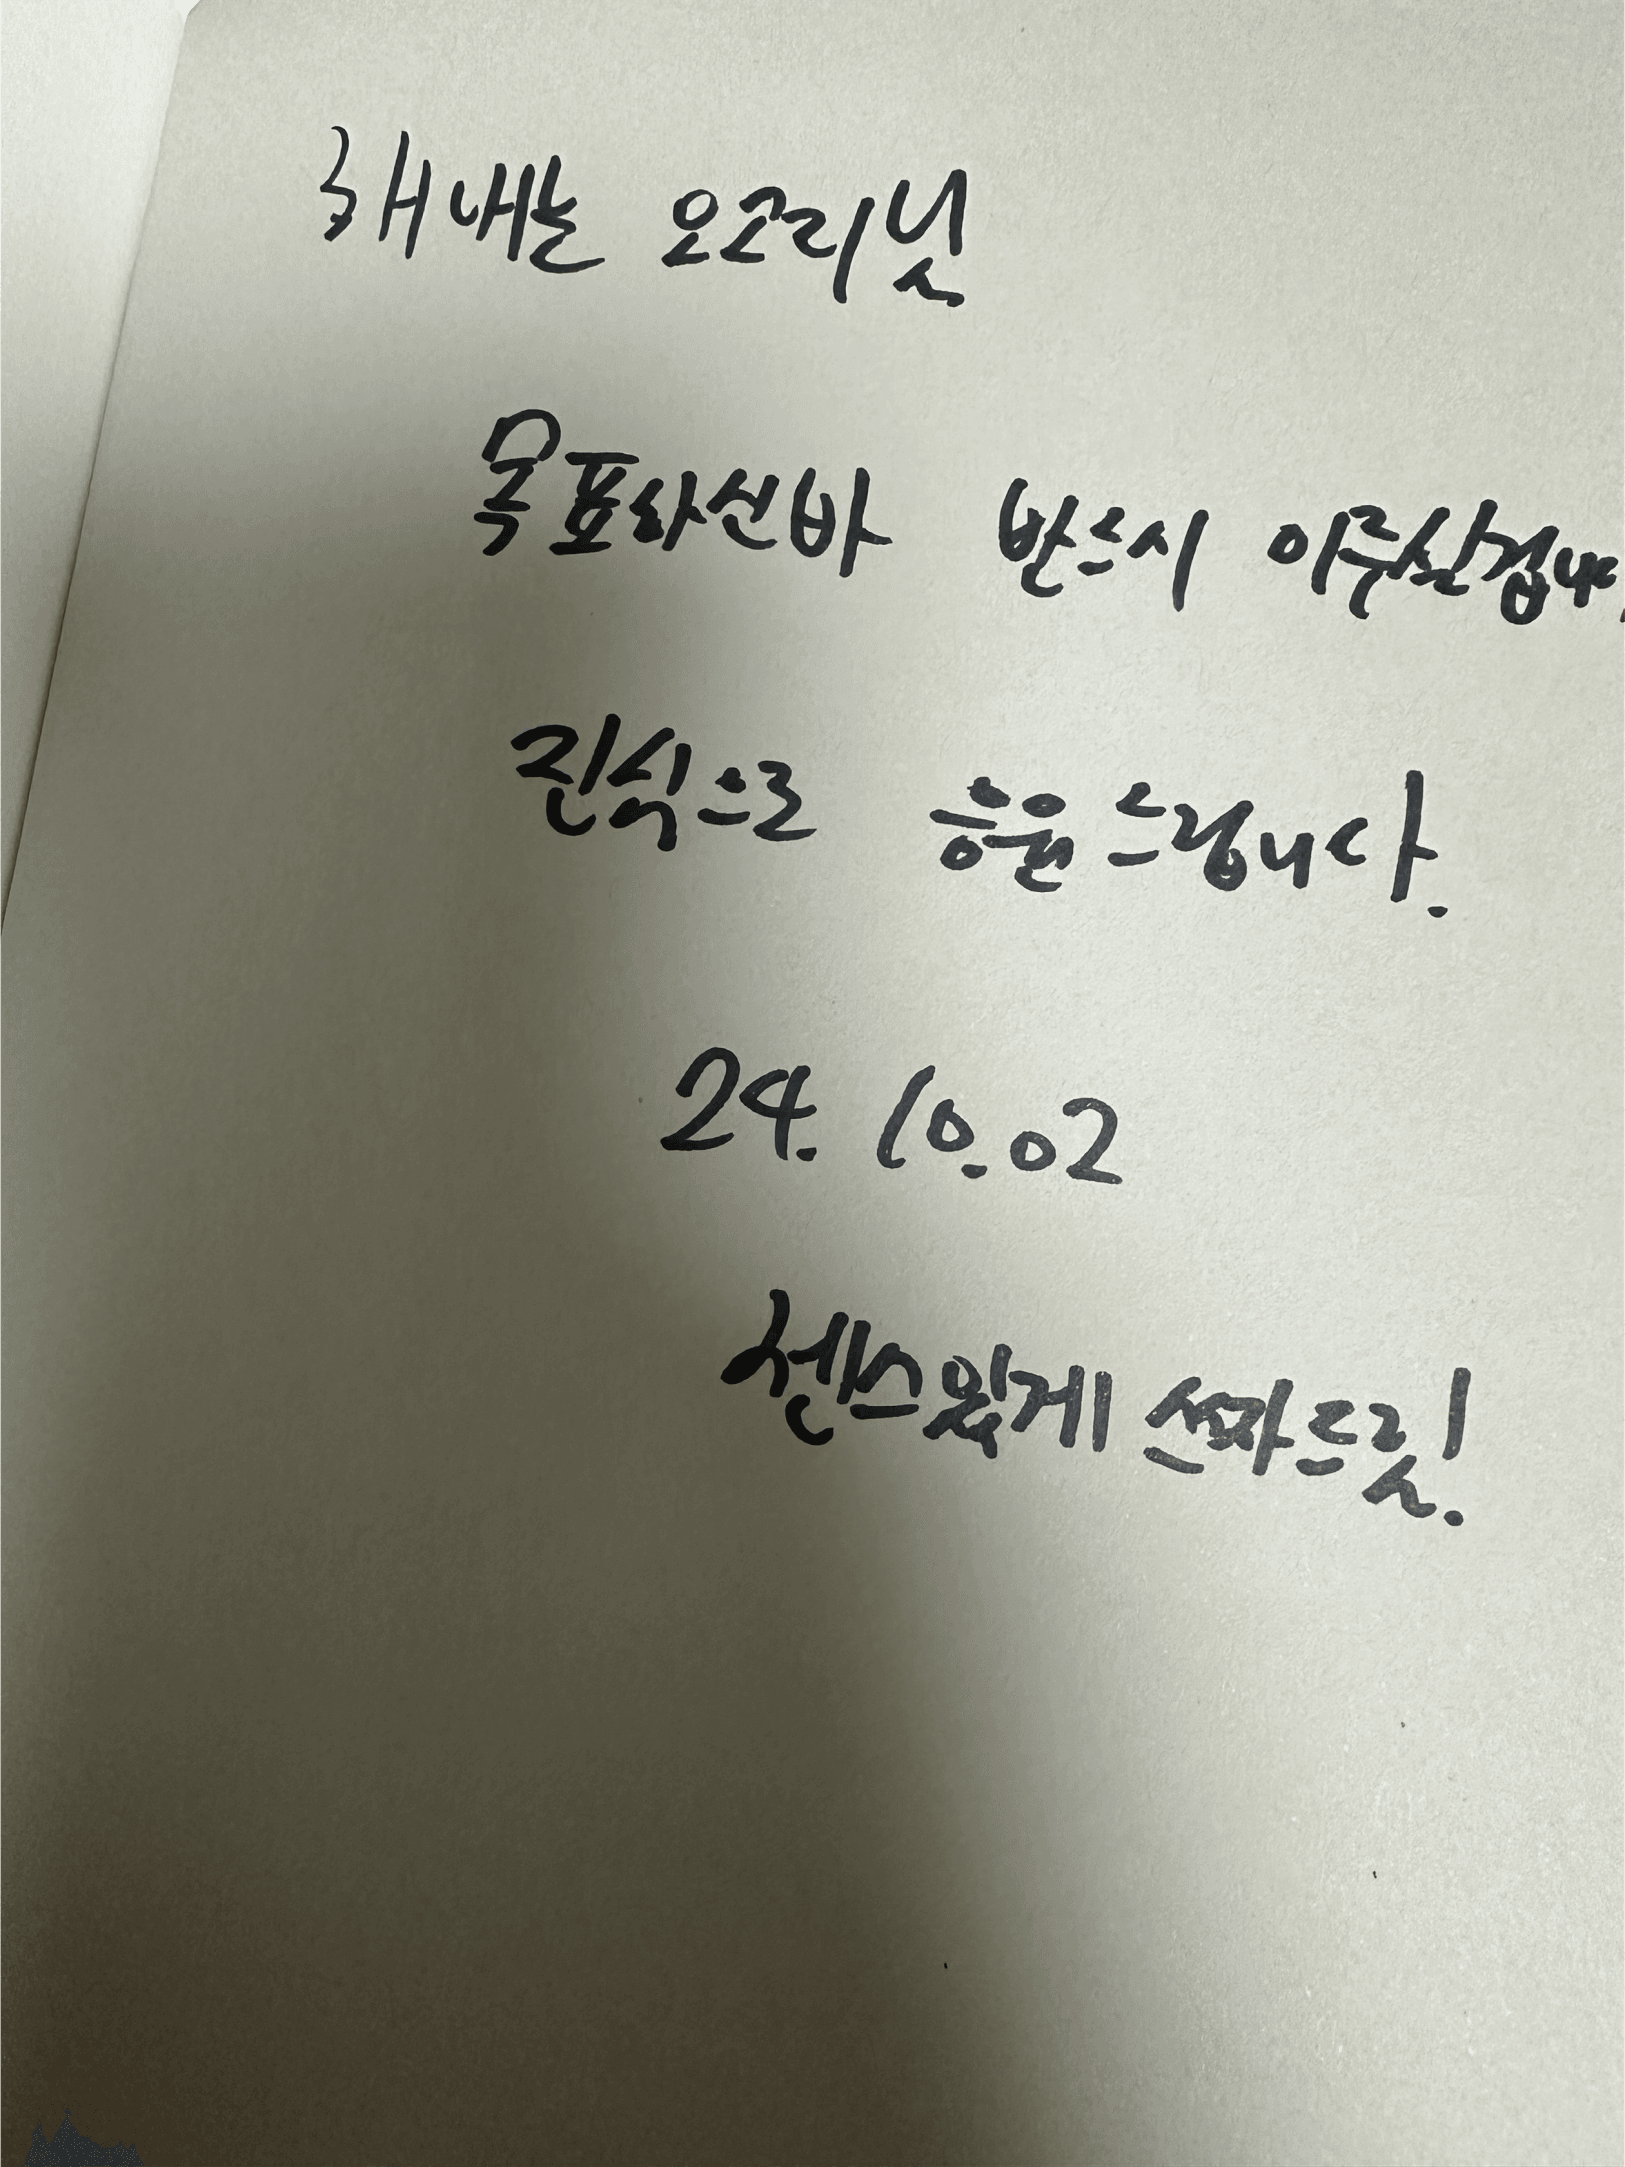 해내는 오고리님
목표하신바 반드시 이루실겁니다
진심으로 응원드립니다.
24. 10. 02
센스있게 쓴파드림!